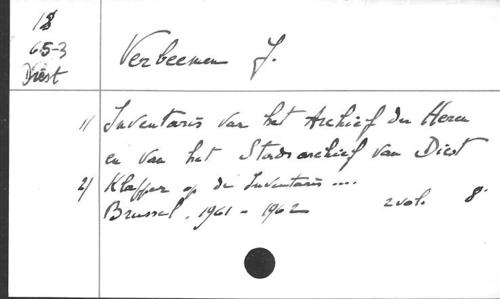 18
65-3
Diest
Verbeemen J.
1/ Inventaris van het Archief der Heren
en van het Stadsarchief van Diest
2/ Klapper op de Inventaris ....
Brussel, 1961 - 1962 2 vol. 8°